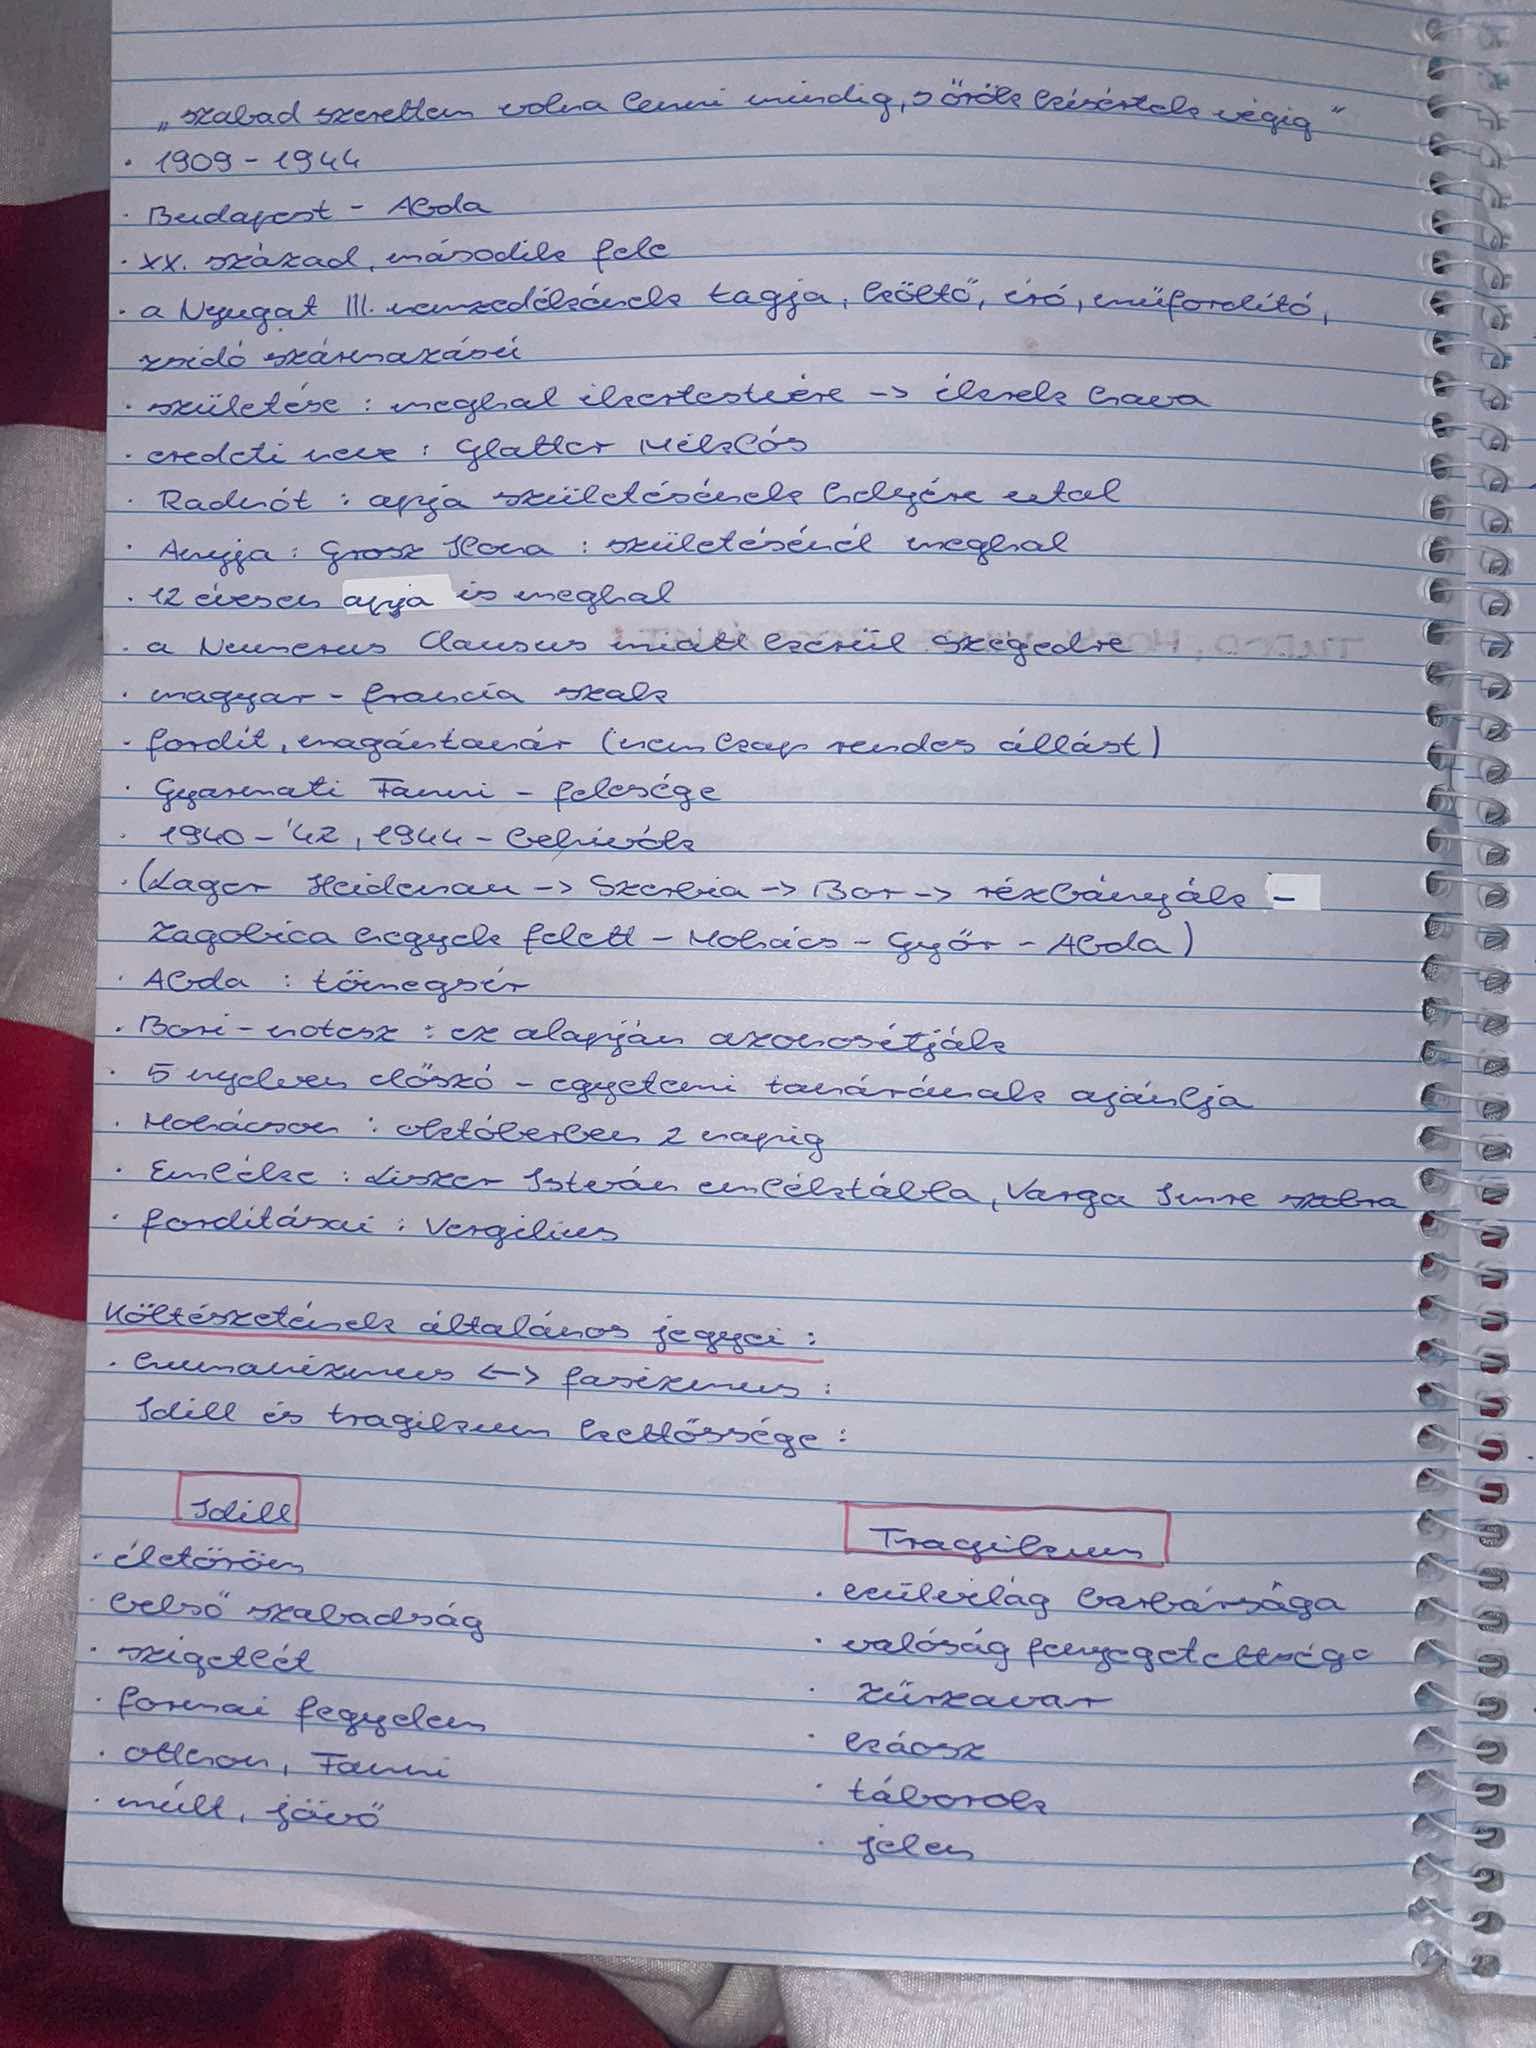 „szabad szerettem volna lenni mindig, s őrök kísértek végig"
· 1909 - 1944
· Budapest - Abda
· XX. század, második fele
· a Nyugat III. nemzedékének tagja, költő, író, műfordító,
zsidó származású
· születése : meghal ikertestvére -> ikrek hava
· eredeti neve : Glatter Miklós
· Radnót : apja születésének helyére utal
· Anyja : Grosz Ilona : születésénél meghal
· 12 évesen apja is meghal
· a Numerus Clausus miatt kerül Szegedre
· magyar - francia szak
· fordít, magántanár (nem kap rendes állást)
· Gyarmati Fanni - felesége
· 1940 - '42, 1944 - behívók
· (Lager Heidenau -> Szerbia -> Bor -> rézbányák -
Zagubica hegyek felett - Mohács - Győr - Abda)
· Abda : tömegsír
· Bori-notesz : ez alapján azonosítják
· 5 nyelven előszó - egyetemi tanárának ajánlja
· Mohácson : októberben 2 napig
· Emléke : Liszer István emléktábla, Varga Imre szobra
· fordításai : Vergilius
Költészetének általános jegyei :
· humanizmus <-> fasizmus :
Idill és tragikum kettőssége :
Idill
Tragikum
· életöröm
· külvilág barbársága
· belső szabadság
· valóság fenyegetettsége
· szigetlét
· zűrzavar
· formai fegyelem
· káosz
· otthon, Fanni
· táborok
· múlt, jövő
· jelen